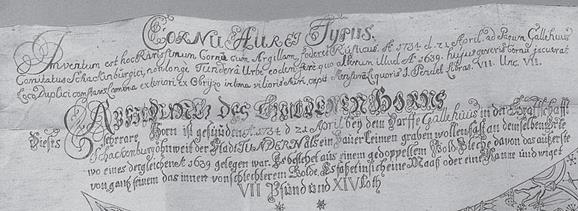 CORNU AUREI TYPUS.
Inventum est hoc Rarissimum Cornu cum Argillam foderet Rusticus A° 1734 d. 21 April. ad Pagum Gallehuus
Comitatus Schackenburgici, non longe Tundera Urbe eodem fere quo alterum illud A° 1639. hujus generis cornu jacuerat
Loco Duplici constans lamina exteriori ex Obryzo intima viliori
Liquoris Pendet Libras. VII. Unc. VII.
ABBILDUNG DES GULDENEN HORNS
Dieses Horn ist gefunden A° 1734 d 21 April bey dem Dorffe Gallehuus in der Graffschafft
Schackenburg ohnweit der Stadt TUNDERN als ein Baier Leimen graben wollen fast an demselben Orte
wo eines dergleichen A° 1639 gelegen war. Es bestehet aus einem gedoppeltem Gold Bleche davon das äuserste
von gantz feinem das innere von schlechterem Golde. Es fasset in sich eine Maaß oder eine Kanne und wiget
VII Pfund und XIV Loth